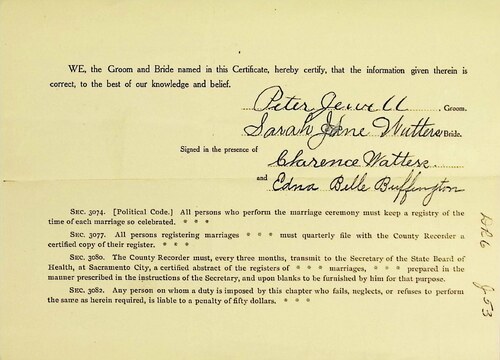 WE, the Groom and Bride named in this Certificate, hereby certify, that the information given therein is
correct, to the best of our knowledge and belief.
Peter Jewell Groom.
Sarah Jane Watters Bride.
Signed in the presence of
Clarence Watters
and Edna Belle Buffington
SEC. 3074. [Political Code.] All persons who perform the marriage ceremony must keep a registry of the
time of each marriage so celebrated. * * *
SEC. 3077. All persons registering marriages * * * must quarterly file with the County Recorder a
certified copy of their register. * * *
SEC. 3080. The County Recorder must, every three months, transmit to the Secretary of the State Board of
Health, at Sacramento City, a certified abstract of the registers of * * * marriages, * * * prepared in the
manner prescribed in the instructions of the Secretary, and upon blanks to be furnished by him for that purpose.
SEC. 3082. Any person on whom a duty is imposed by this chapter who fails, neglects, or refuses to perform
the same as herein required, is liable to a penalty of fifty dollars. * * *